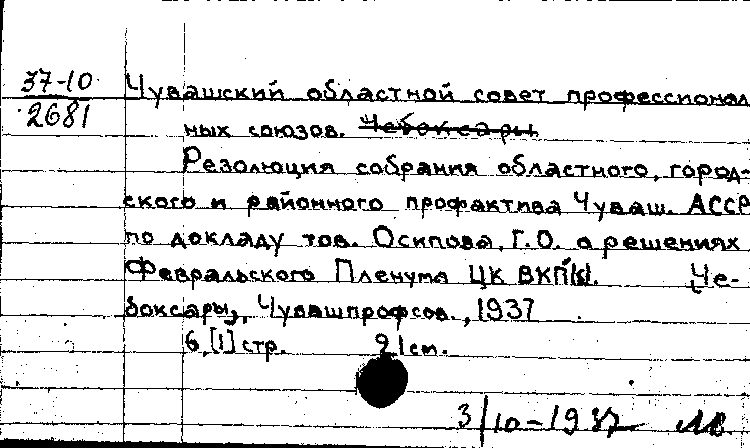 37-10
2681
Чувашский областной совет профессионал
ных союзов. Чебоксары
Резолюция собрания областного, город-
ского и районного профактива Чуваш. АССР
по докладу тов. Осипова, Г.О. о решениях
Февральского Пленума ЦК ВКП(б). Че-
боксары, Чувашпрофсов., 1937
6, [1] стр. 21 см.
3/10-1937